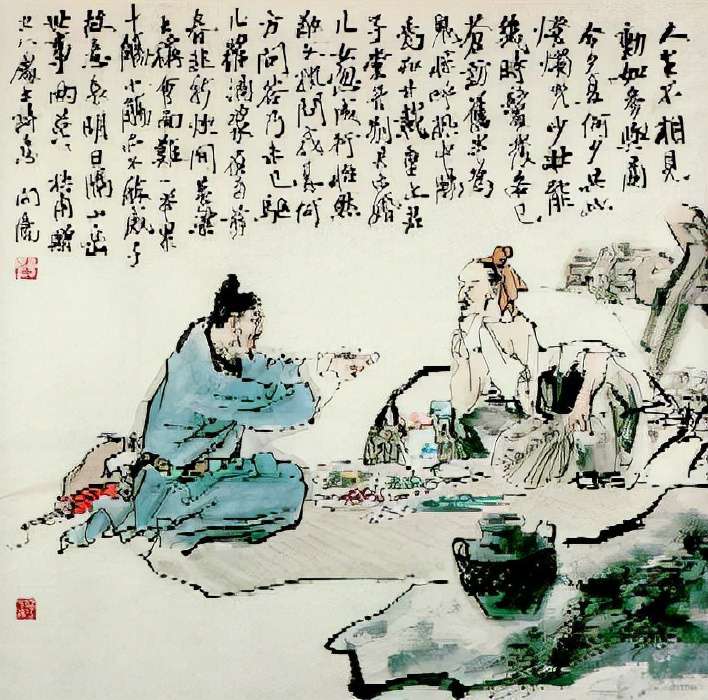 人生不相見
動如參與商
今夕復何夕共此
燈燭光少壯能
幾時鬢髮各已
蒼訪舊半為
鬼驚呼熱中腸
焉知廿載重上君
子堂昔別君未婚
兒女忽成行怡然
敬父執問我來何
方問答乃未已驅
兒羅酒漿夜雨翦
春韭新炊間黃粱
主稱會面難一舉累
十觴十觴亦不醉感子
故意長明日隔山岳
世事兩茫茫杜甫贈
衛八處士詩意